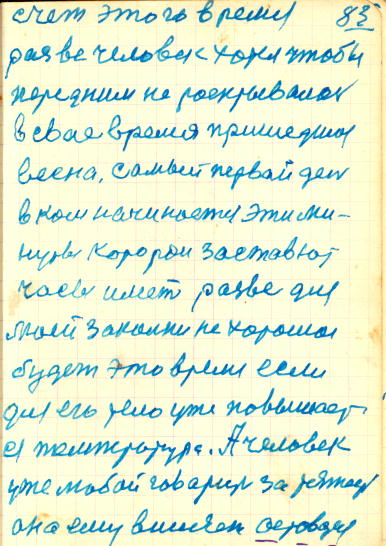 счет этого время 83
разве человек хотя чтобы
перед ним не раскрывалас
в свае время пришедшая
весна, самый первай ден
в ком начинается эти ми-
нуты которои заставют
часы имет разве для
моей закалки не хорошое
будет это время если
для его тело уже повышает
ся температура. А человек
уже мобой говарит за
она ему